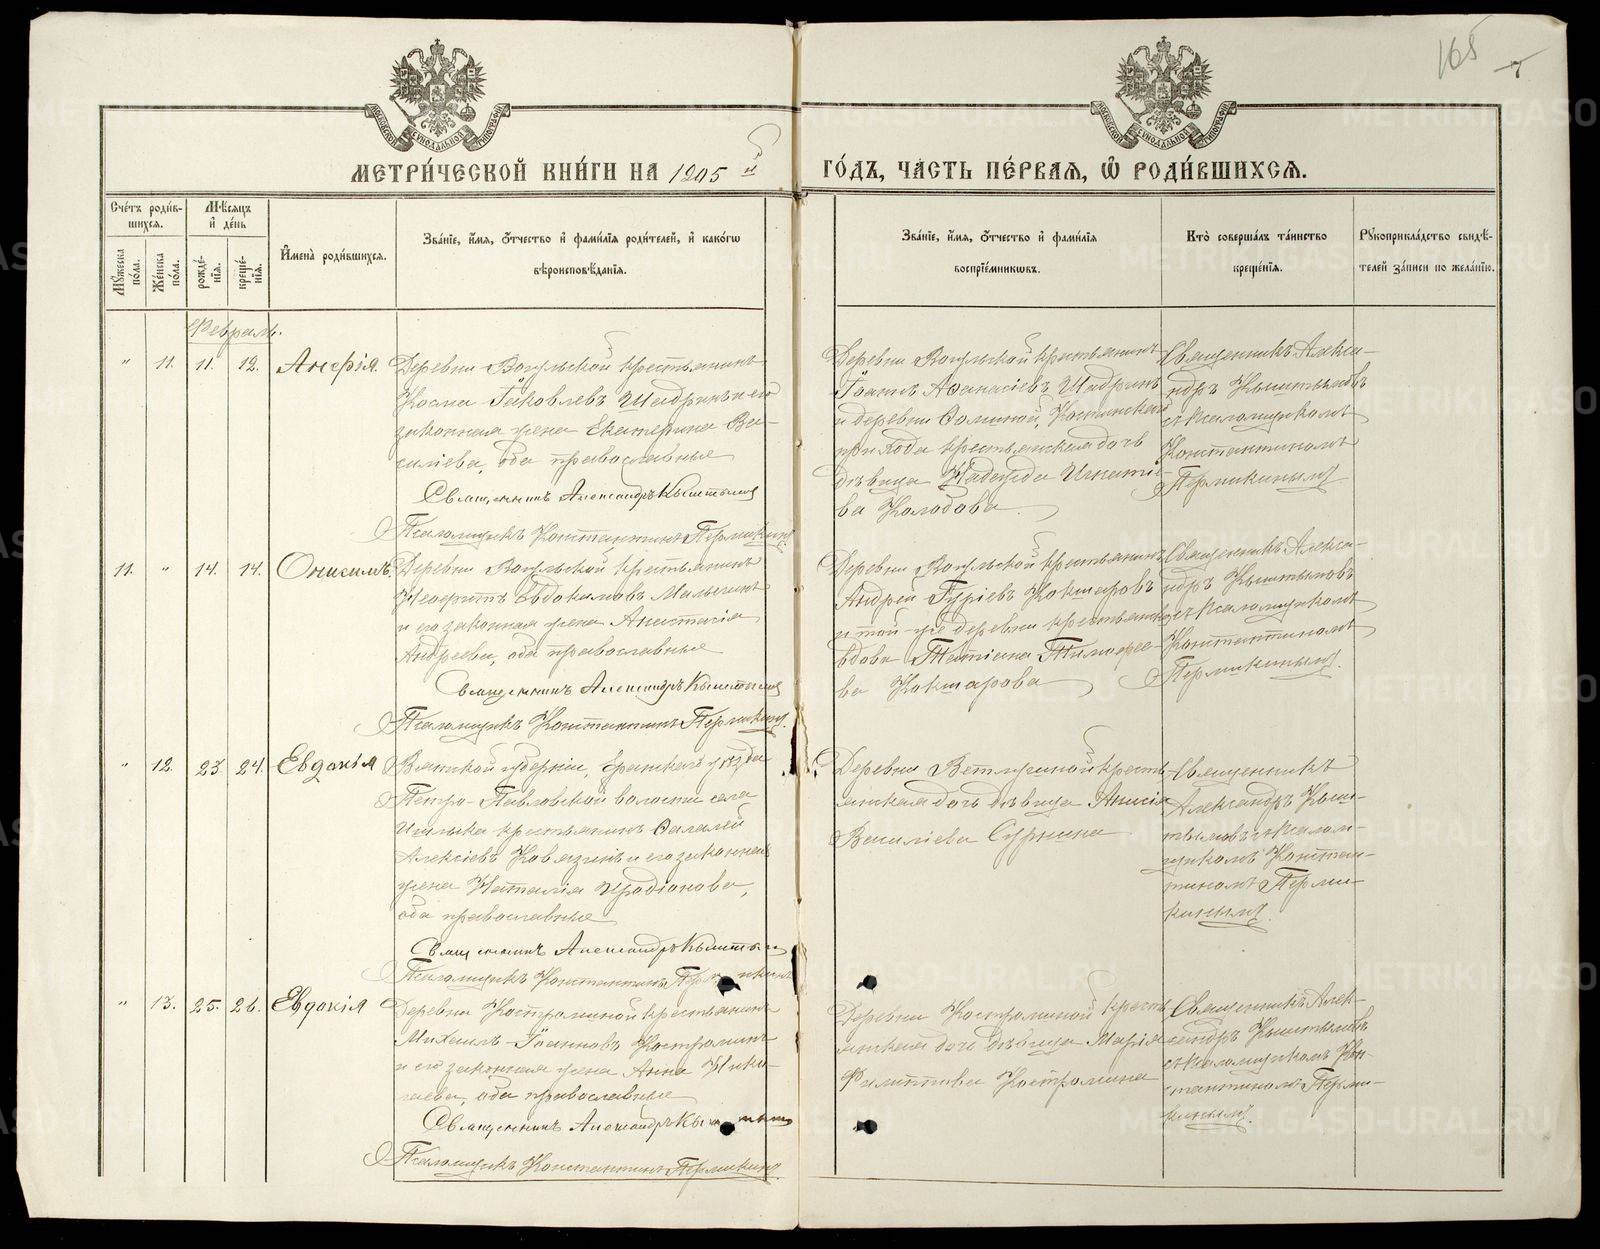 165
МЕТРИ́ЧЕСКОЙ КНИ́ГИ НА 1905 й ГО́ДЪ, ЧА́СТЬ ПЕ́РВАѦ, Ѡ҆ РОДИ́ВШИХСѦ.
Сче́тъ роди́вшихсѧ.
Мꙋ́жеска по́ла.
Же́нска по́ла.
Мѣ́сѧцъ и҆ де́нь
рожде́нїѧ.
креще́нїѧ.
И҆мена̀ роди́вшихсѧ.
Зва́нїе, и҆́мѧ, ѻ҆́тчество и҆ фами́лїѧ роди́телей, и҆ како́гѡ
вѣроисповѣ́данїѧ.
Зва́нїе, и҆́мѧ, ѻ҆́тчество и҆ фами́лїѧ
воспрїе́мникѡвъ.
Кто̀ соверша́лъ та́инство
креще́нїѧ.
Рꙋкоприкла́дство свидѣ́-
телей за́писи по жела́нїю.
Февраль.
" 11. 11. 12. Анфія
Деревни Вогульской крестьянинъ
Косма Іаковлевъ Шадринъ и его
законная жена Екатерина Ва-
силіева, оба православные
Священникъ Александръ Кыштымов
Псаломщикъ Константинъ Пермикинъ
Деревни Вогульской крестьянинъ
Іоаннъ Аѳанасіевъ Шадринъ
и деревни
прихода крестьянская дочь
дѣвица Надежда Игнатіе-
ва Колодова
Священникъ Алекса-
ндръ Кыштымовъ
съ псаломщикомъ
Константиномъ
Пермикинымъ
11. " 14. 14. Онисимъ.
Деревни Вогульской крестьянинъ
Евдокимовъ Малыгинъ
и его законная жена Анастасія
Андреева, оба православные
Священникъ Александръ Кыштымов
Псаломщикъ Константинъ Пермикинъ.
Деревни Вогульской крестьянинъ
Андрей Гуріевъ Кокшаровъ
и той-же деревни крестьянская
вдова Татіана Тимофее-
ва Кокшарова
Священникъ Алекса-
ндръ Кыштымовъ
съ псаломщикомъ
Константиномъ
Пермикинымъ.
" 12. 23. 24. Евдокія
Вятской губерніи, уѣзда
Петро-Павловской волости села
крестьянинъ
Алексіевъ Ковязинъ и его законная
жена Наталія Иродіонова,
оба православные
Священникъ Александръ Кыштым
Псаломщикъ Константинъ Пермикинъ
Деревни Ветлугиной кресть-
янская дочь дѣвица Анисія
Василіева Суркина
Священникъ
Александръ Кыш-
тымовъ съ псалом-
щикомъ Констан-
тиномъ Перми-
кинымъ.
" 13. 25. 26. Евдокія
Деревни Костроминой крестьянинъ
Михаилъ Іоанновъ Костроминъ
и его законная жена Анна Нико-
лаева, оба православные
Священникъ Александръ Кыштымов
Псаломщикъ Константинъ Пермикинъ
Деревни Костроминой кресть-
янская дочь дѣвица Марія
Филиппова Костромина
Священникъ Алек-
сандръ Кыштымовъ
съ псаломщикомъ Кон-
стантиномъ Перми-
кинымъ.
METRIKI.GASO-URAL.RU